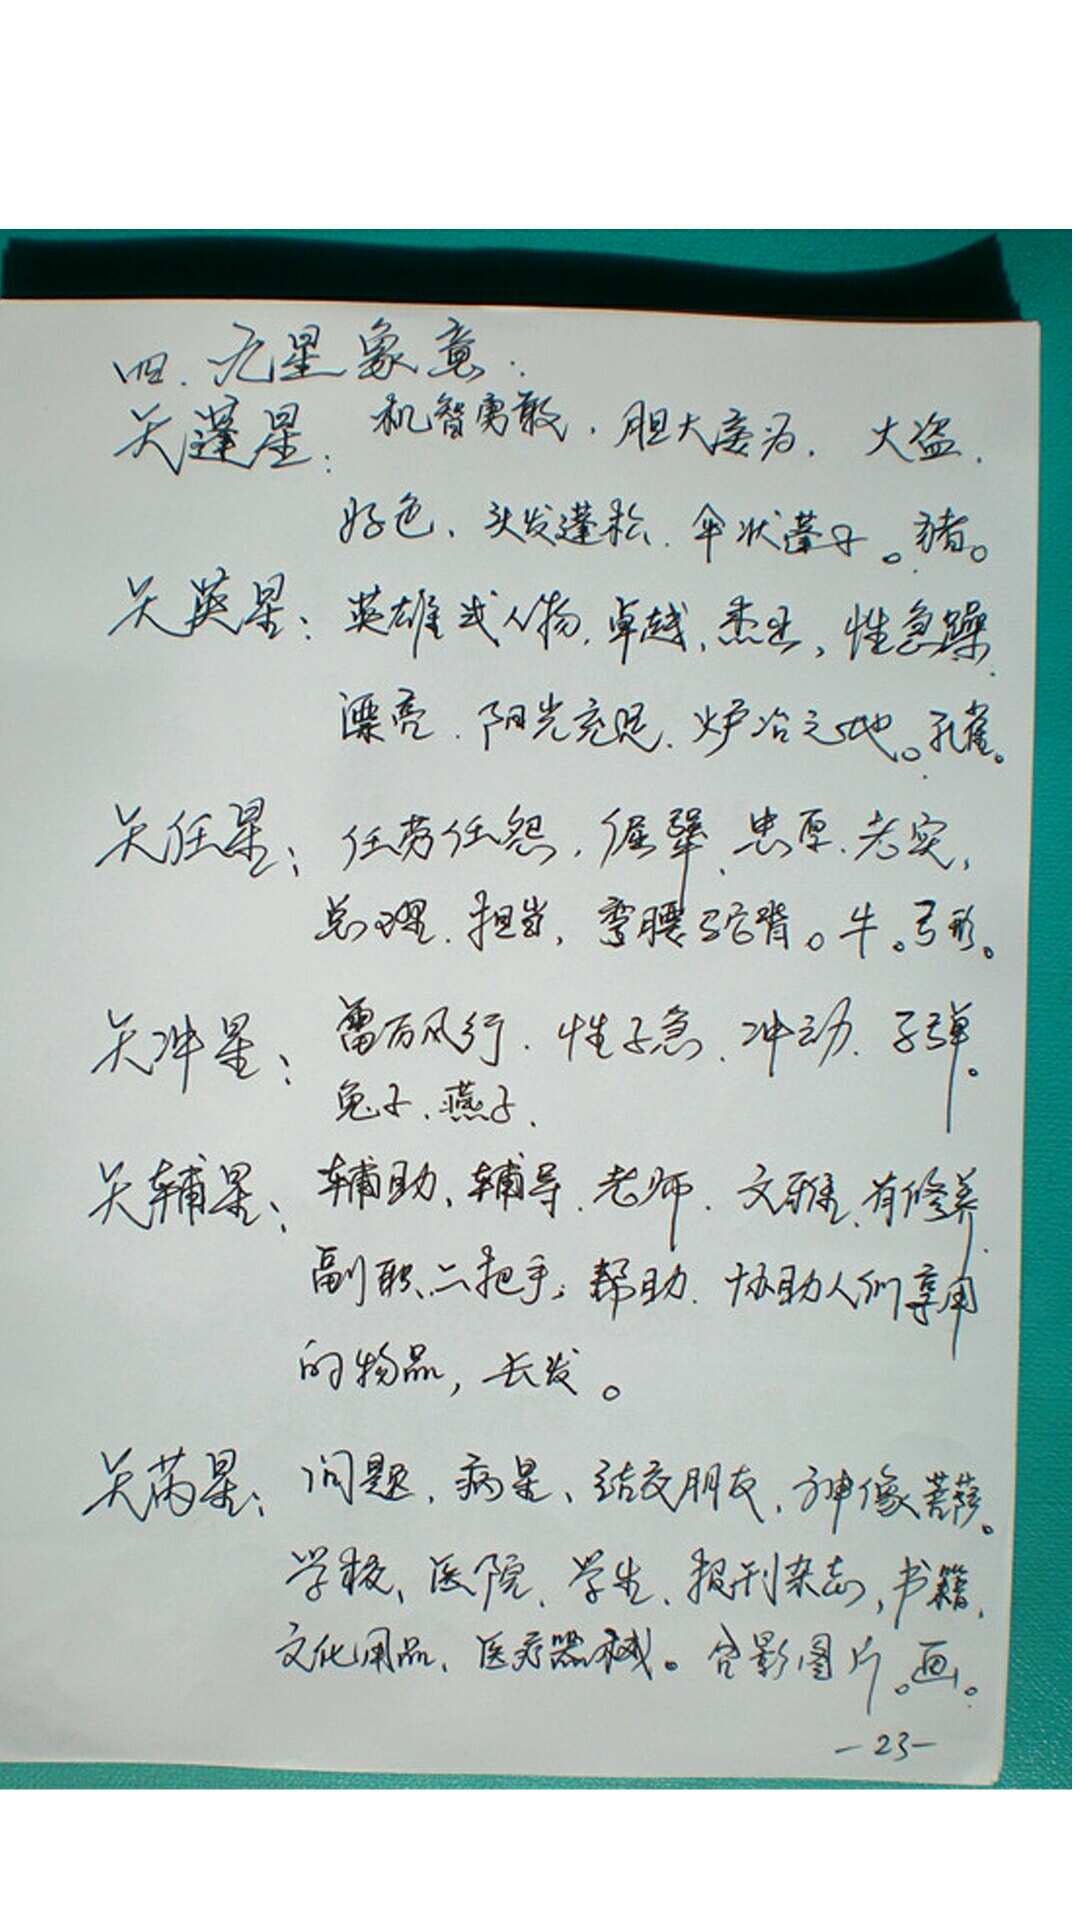 四、九星象意:
天蓬星: 机智勇敢、胆大妄为、大盗、
好色、头发蓬松、伞状蓬子。猪。
天英星: 英雄式人物、卓越、杰出,性急躁、
漂亮、阳光充足、炉冶之地。孔雀。
天任星: 任劳任怨、倔犟、忠厚、老实,
总理、担当,弯腰驼背。牛。弓形。
天冲星: 雷厉风行、性子急、冲动、子弹。
兔子、燕子、
天辅星: 辅助、辅导、老师、文雅、有修养、
副职、二把手,帮助、协助人们享用
的物品,长发。
天芮星: 问题、病星、结交朋友、神像菩萨。
学校、医院、学生、报刊杂志,书籍,
文化用品、医疗器械。合影图片。画。
-23-